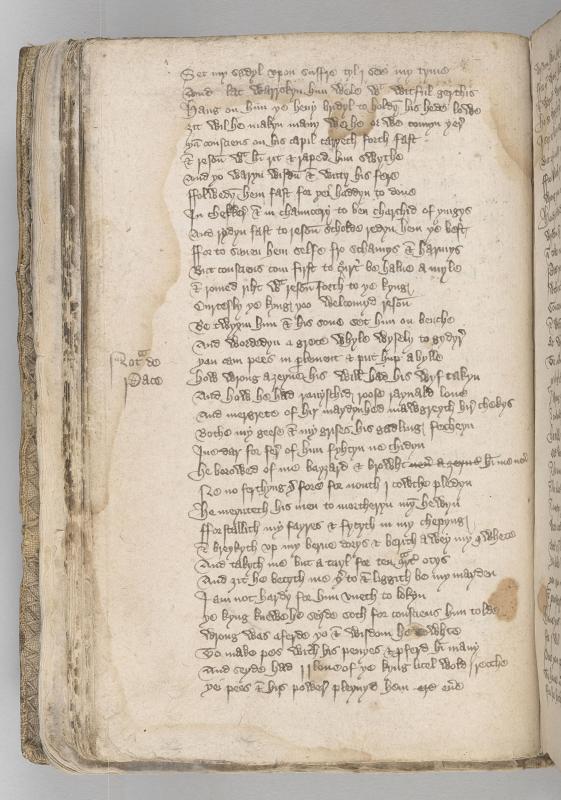 Set my sadyl vpon suffre tyl i seis my tyme
And lat warrokyn hym wele wt witful gerthis
Hang on hym ye heuy brydyl to holdyn his hede lowe
Zit wil he makyn many we he or we comyn yer
yan consciens on his capil caryeth forth fast
& reson wt hi rit & raped hym swythe
And yo waryn wisdu & witty his fere
ffolwedyn hem fast for yei haddyn to done
In cheker & in chauncery to ben dischargid of yingis
And rydyn fast to reson scholde redyn hem ye best
ffor to sauen hem selfe fro schamys & harmys
But consciens com first to court be halue a myle
& romed riht wt reson forth to ye kyng
Curtesly ye kyng yoo welcomyd reson
Be twyxyn hym & his sone set him on benche
And wordedyn a grete whyle wysely to gydyr
yan cam pees in plement & put hup a bylle
Not de
Pace
how wrong azeyne his will had his wyf takyn
And how he had rauyschid roose raynald loue
And mergrete of hir maydynhed mawgreyth hir chekys
Bothe my geese & my grises his gadlingis fecheyn
I ne dar for fer of him fyhtyn ne chidyn
he borowed of me bayzard & browht hi me neuer
Ne no ferthyng yfore for nouht i cowthe pledyn
he meynteth his men to mortheryn myn hewyn
fforstallith my fayres & fytyth in my chepyng
& breykyth vp my berne dorys & berith a wey my qwhete
And takyth me but a tayl for ten quart otys
And zit he betyth me yto & liggith be my mayden
I am not hardy for him vneth to lokyn
ye kyng knewe he seyde soth for consciens him tolde
wrong was aferde yo & wisdom he sowhte
To make pes with his penyes & pferd hi many
And seyde had i loue of ye kyng litel wold i recche
yei pees & his power pleynyd hem